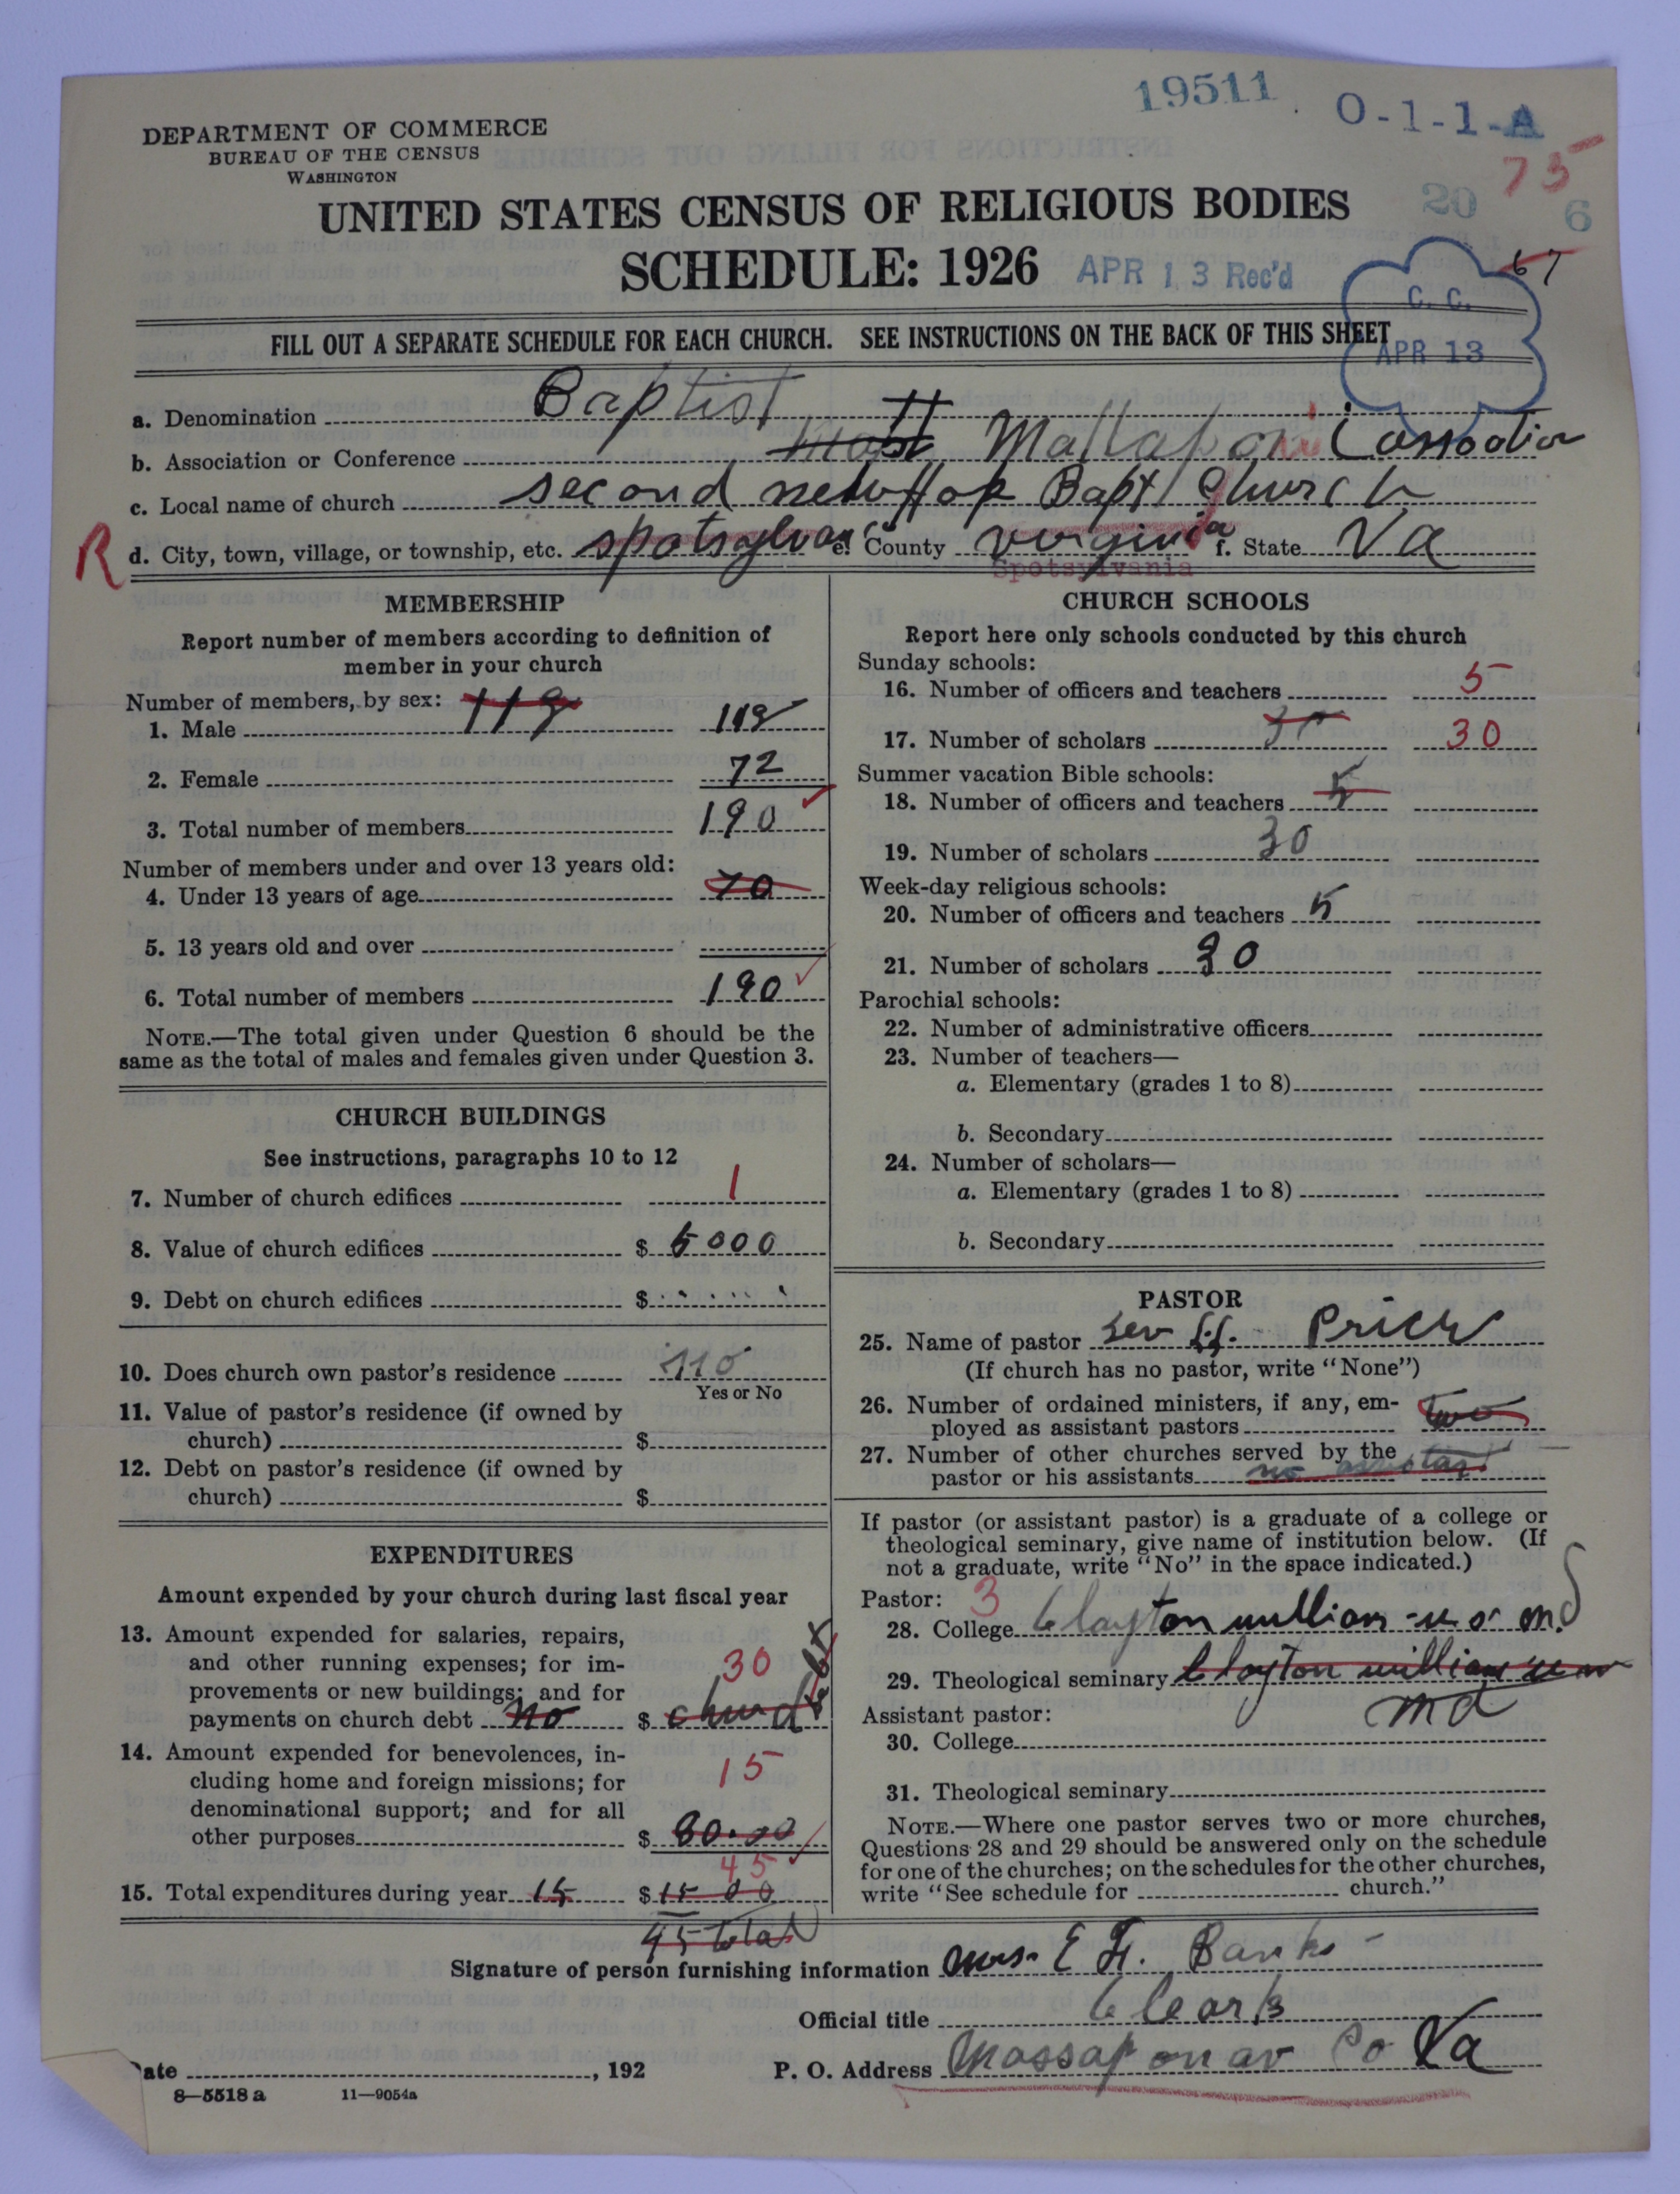 19511 O-1-1-A
DEPARTMENT OF COMMERCE
BUREAU OF THE CENSUS
WASHINGTON
75
20 6
UNITED STATES CENSUS OF RELIGIOUS BODIES
SCHEDULE: 1926 APR 13 Rec'd
67
C. C.
APR 13
FILL OUT A SEPARATE SCHEDULE FOR EACH CHURCH. SEE INSTRUCTIONS ON THE BACK OF THIS SHEET
a. Denomination Baptist
b. Association or Conference Matt Mattaponi
c. Local name of church second new Hop Bapt Church
R d. City, town, village, or township, etc. spotsylvan e. County virginia f. State Va
Spotsylvania
MEMBERSHIP
Report number of members according to definition of
member in your church
Number of members, by sex: 118
1. Male 118
2. Female 72
3. Total number of members 190
Number of members under and over 13 years old:
4. Under 13 years of age 70
5. 13 years old and over
6. Total number of members 190
NOTE.—The total given under Question 6 should be the
same as the total of males and females given under Question 3.
CHURCH BUILDINGS
See instructions, paragraphs 10 to 12
7. Number of church edifices 1
8. Value of church edifices $ 5000
9. Debt on church edifices $
10. Does church own pastor's residence no
Yes or No
11. Value of pastor's residence (if owned by
church) $
12. Debt on pastor's residence (if owned by
church) $
EXPENDITURES
Amount expended by your church during last fiscal year
13. Amount expended for salaries, repairs,
and other running expenses; for im- 30
provements or new buildings; and for
payments on church debt no $ church
14. Amount expended for benevolences, in-
cluding home and foreign missions; for 15
denominational support; and for all
other purposes $ 30.00
45
15. Total expenditures during year 15 $ 15 00
45 total
CHURCH SCHOOLS
Report here only schools conducted by this church
Sunday schools:
16. Number of officers and teachers 5
17. Number of scholars 30
Summer vacation Bible schools:
18. Number of officers and teachers 5
19. Number of scholars 30
Week-day religious schools:
20. Number of officers and teachers 5
21. Number of scholars 30
Parochial schools:
22. Number of administrative officers
23. Number of teachers—
a. Elementary (grades 1 to 8)
b. Secondary
24. Number of scholars—
a. Elementary (grades 1 to 8)
b. Secondary
PASTOR
25. Name of pastor Rev Price
(If church has no pastor, write "None")
26. Number of ordained ministers, if any, em-
ployed as assistant pastors two
27. Number of other churches served by the
pastor or his assistants no
If pastor (or assistant pastor) is a graduate of a college or
theological seminary, give name of institution below. (If
not a graduate, write "No" in the space indicated.)
Pastor: 3
28. College Clayton william
29. Theological seminary Clayton william
md
Assistant pastor:
30. College
31. Theological seminary
NOTE.—Where one pastor serves two or more churches,
Questions 28 and 29 should be answered only on the schedule
for one of the churches; on the schedules for the other churches,
write "See schedule for church."
Signature of person furnishing information Mrs. E H. Banks
Official title Cleark
Date , 192 P. O. Address Massaponav Co Va
8—5518 a 11—9054a